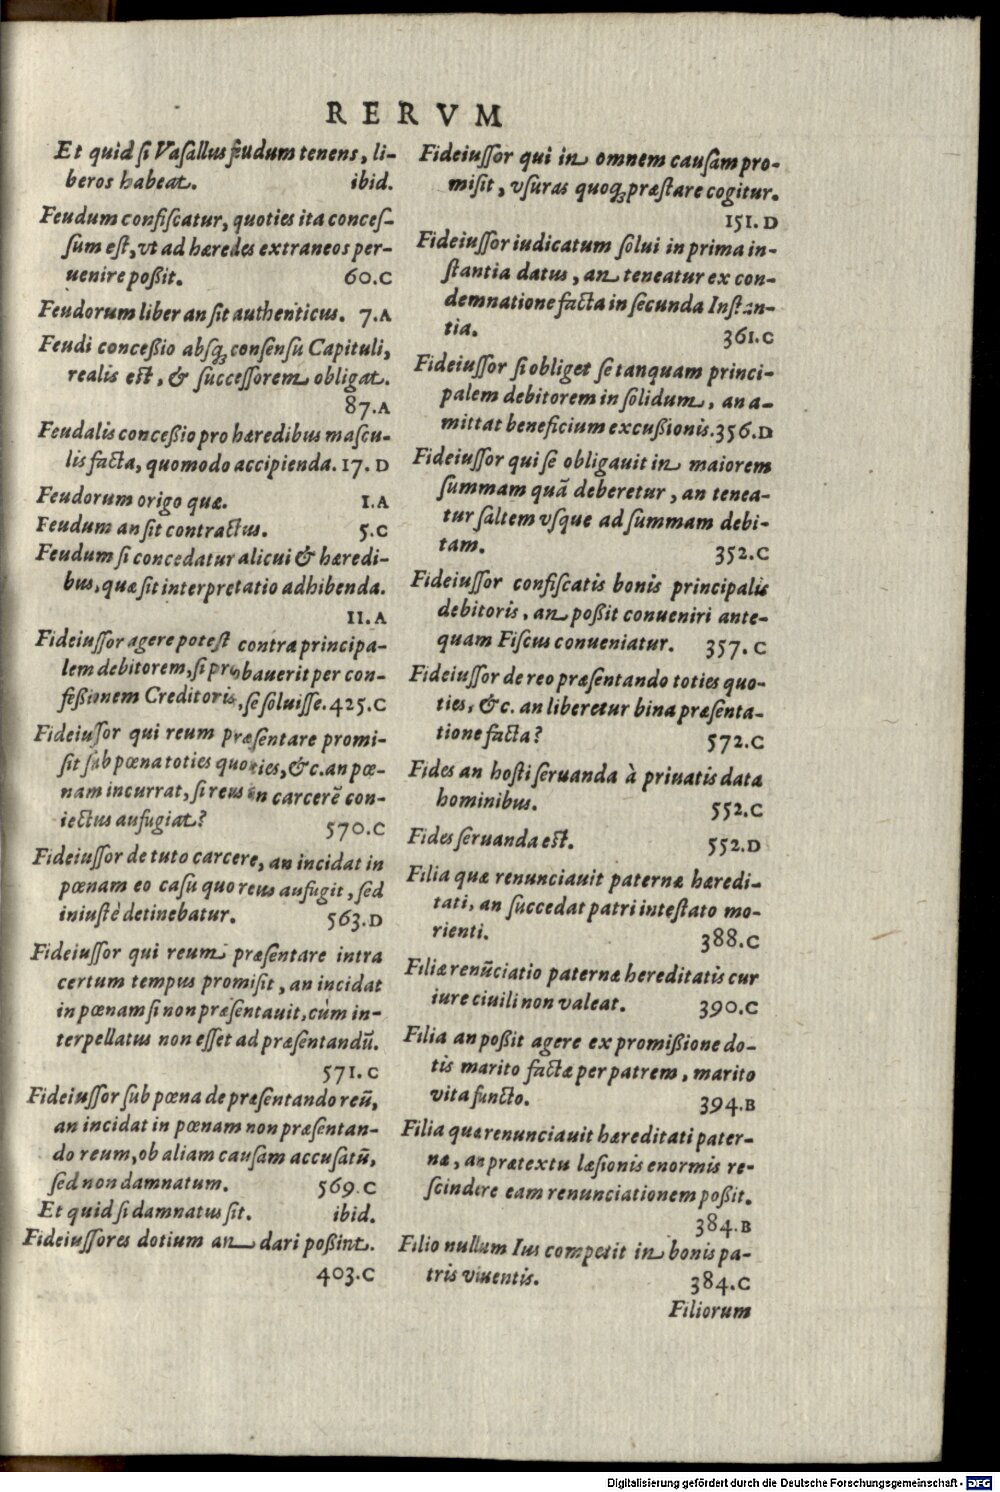 RERVM
Et quid ſi Vaſallus feudum tenens, li-
beros habeat. ibid.
Feudum confiſcatur, quoties ita conceſ-
ſum eſt, vt ad hæredes extraneos per-
uenire poßit. 60.C
Feudorum liber an ſit authenticus. 7.A
Feudi conceßio abſq; conſenſu Capituli,
realis eſt, & ſucceſſorem obligat.
87.A
Feudalis conceßio pro hæredibus maſcu-
lis facta, quomodo accipienda. 17.D
Feudorum origo quæ. 1.A
Feudum an ſit contractus. 5.C
Feudum ſi concedatur alicui & hæredi-
bus, quæ ſit interpretatio adhibenda.
11.A
Fideiuſſor agere poteſt contra principa-
lem debitorem, ſi probauerit per con-
feßionem Creditoris, ſe ſoluiſſe. 425.C
Fideiuſſor qui reum præſentare promi-
ſit ſub pœna toties quoties, &c. an pœ-
nam incurrat, ſi reus in carcerē con-
iectus aufugiat? 570.C
Fideiuſſor de tuto carcere, an incidat in
pœnam eo caſu quo reus aufugit, ſed
iniuſtè detinebatur. 563.D
Fideiuſſor qui reum præſentare intra
certum tempus promiſit, an incidat
in pœnam ſi non præſentauit, cùm in-
terpellatus non eſſet ad præſentandū.
571.C
Fideiuſſor ſub pœna de præſentando reū,
an incidat in pœnam non præſentan-
do reum, ob aliam cauſam accuſatū,
ſed non damnatum. 569.C
Et quid ſi damnatus ſit. ibid.
Fideiuſſores dotium an dari poßint.
403.C
Fideiuſſor qui in omnem cauſam pro-
miſit, vſuras quoq; præſtare cogitur.
151.D
Fideiuſſor iudicatum ſolui in prima in-
ſtantia datus, an teneatur ex con-
demnatione facta in ſecunda Inſtan-
tia. 361.C
Fideiuſſor ſi obliget ſe tanquam princi-
palem debitorem in ſolidum, an a-
mittat beneficium excußionis. 356.D
Fideiuſſor qui ſe obligauit in maiorem
ſummam quā deberetur, an tenea-
tur ſaltem vſque ad ſummam debi-
tam. 352.C
Fideiuſſor confiſcatis bonis principalis
debitoris, an poßit conueniri ante-
quam Fiſcus conueniatur. 357.C
Fideiuſſor de reo præſentando toties quo-
ties, &c. an liberetur bina præſenta-
tione facta? 572.C
Fides an hoſti ſeruanda à priuatis data
hominibus. 552.C
Fides ſeruanda eſt. 552.D
Filia quæ renunciauit paternæ hæredi-
tati, an ſuccedat patri inteſtato mo-
rienti. 388.C
Filiæ renūciatio paternæ hereditatis cur
iure ciuili non valeat. 390.C
Filia an poßit agere ex promißione do-
tis marito factæ per patrem, marito
vita functo. 394.B
Filia quæ renunciauit hæreditati pater-
næ, an prætextu læſionis enormis re-
ſcindere eam renunciationem poßit.
384.B
Filio nullum Ius competit in bonis pa-
tris viuentis. 384.C
Filiorum
Digitalisierung gefördert durch die Deutsche Forschungsgemeinschaft - DFG